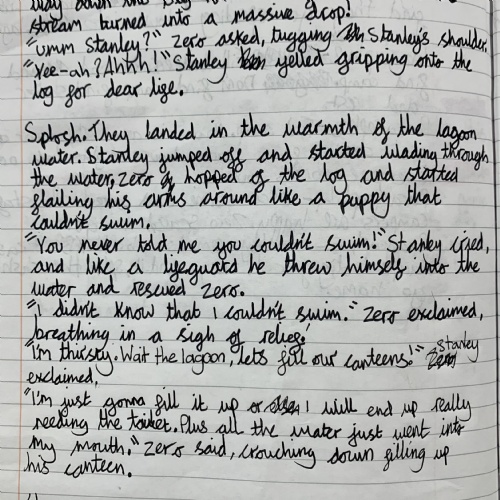 way down the big
stream burned into a massive drop!
"umm Stanley?" Zero asked, tugging Stanley's shoulder.
"Yee-ah? Ahhh!" Stanley yelled gripping onto the
log for dear lige.
Splosh. They landed in the warmth of the lagoon
water. Stanley jumped off and started wading through
the water, Zero hopped of the log and started
flailing his arms around like a puppy that
couldn't swim.
"You never told me you couldn't swim!" Stanley cried,
and like a lifeguard he threw himself into the
water and rescued Zero.
"I didn't know that I couldn't swim." Zero exclaimed,
breathing in a sigh of relief.
"I'm thirsty. Wait the lagoon, lets fill our canteens!" Stanley
exclaimed.
"I'm just gonna fill it up or I will end up really
needing the toilet. Plus all the water just went into
my mouth." Zero said, crouching down filling up
his canteen.